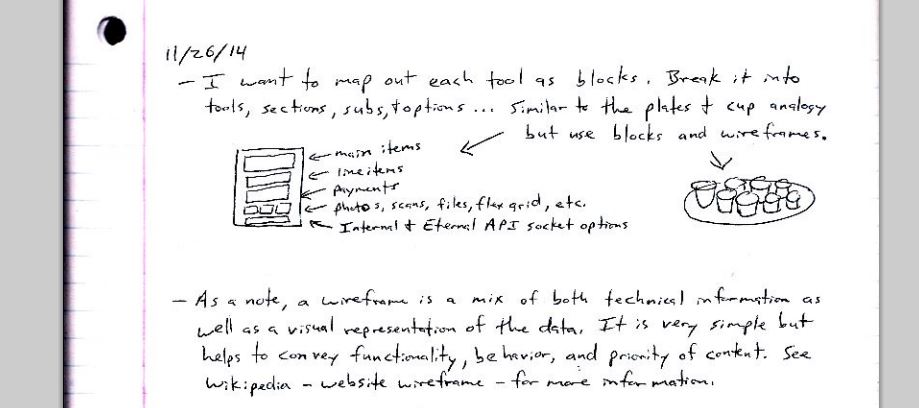 11/26/14
- I want to map out each tool as blocks. Break it into
tools, sections, subs, + options ... Similar to the plates + cup analogy
but use blocks and wireframes.
main items
line items
payments
photos, scans, files, flex grid, etc.
Internal + Eternal API socket options
- As a note, a wireframe is a mix of both technical information as
well as a visual representation of the data. It is very simple but
helps to convey functionality, behavior, and priority of content. See
Wikipedia - website wireframe - for more information.